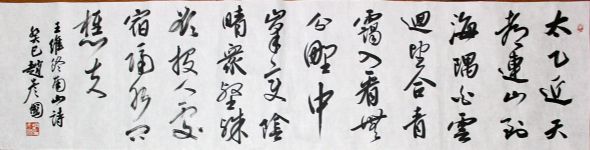 太乙近天
都連山到
海隅白雲
迴望合青
靄入看無
分野中
峯變陰
晴眾壑殊
欲投人處
宿隔水問
樵夫
王維終南山詩
癸巳趙彥國